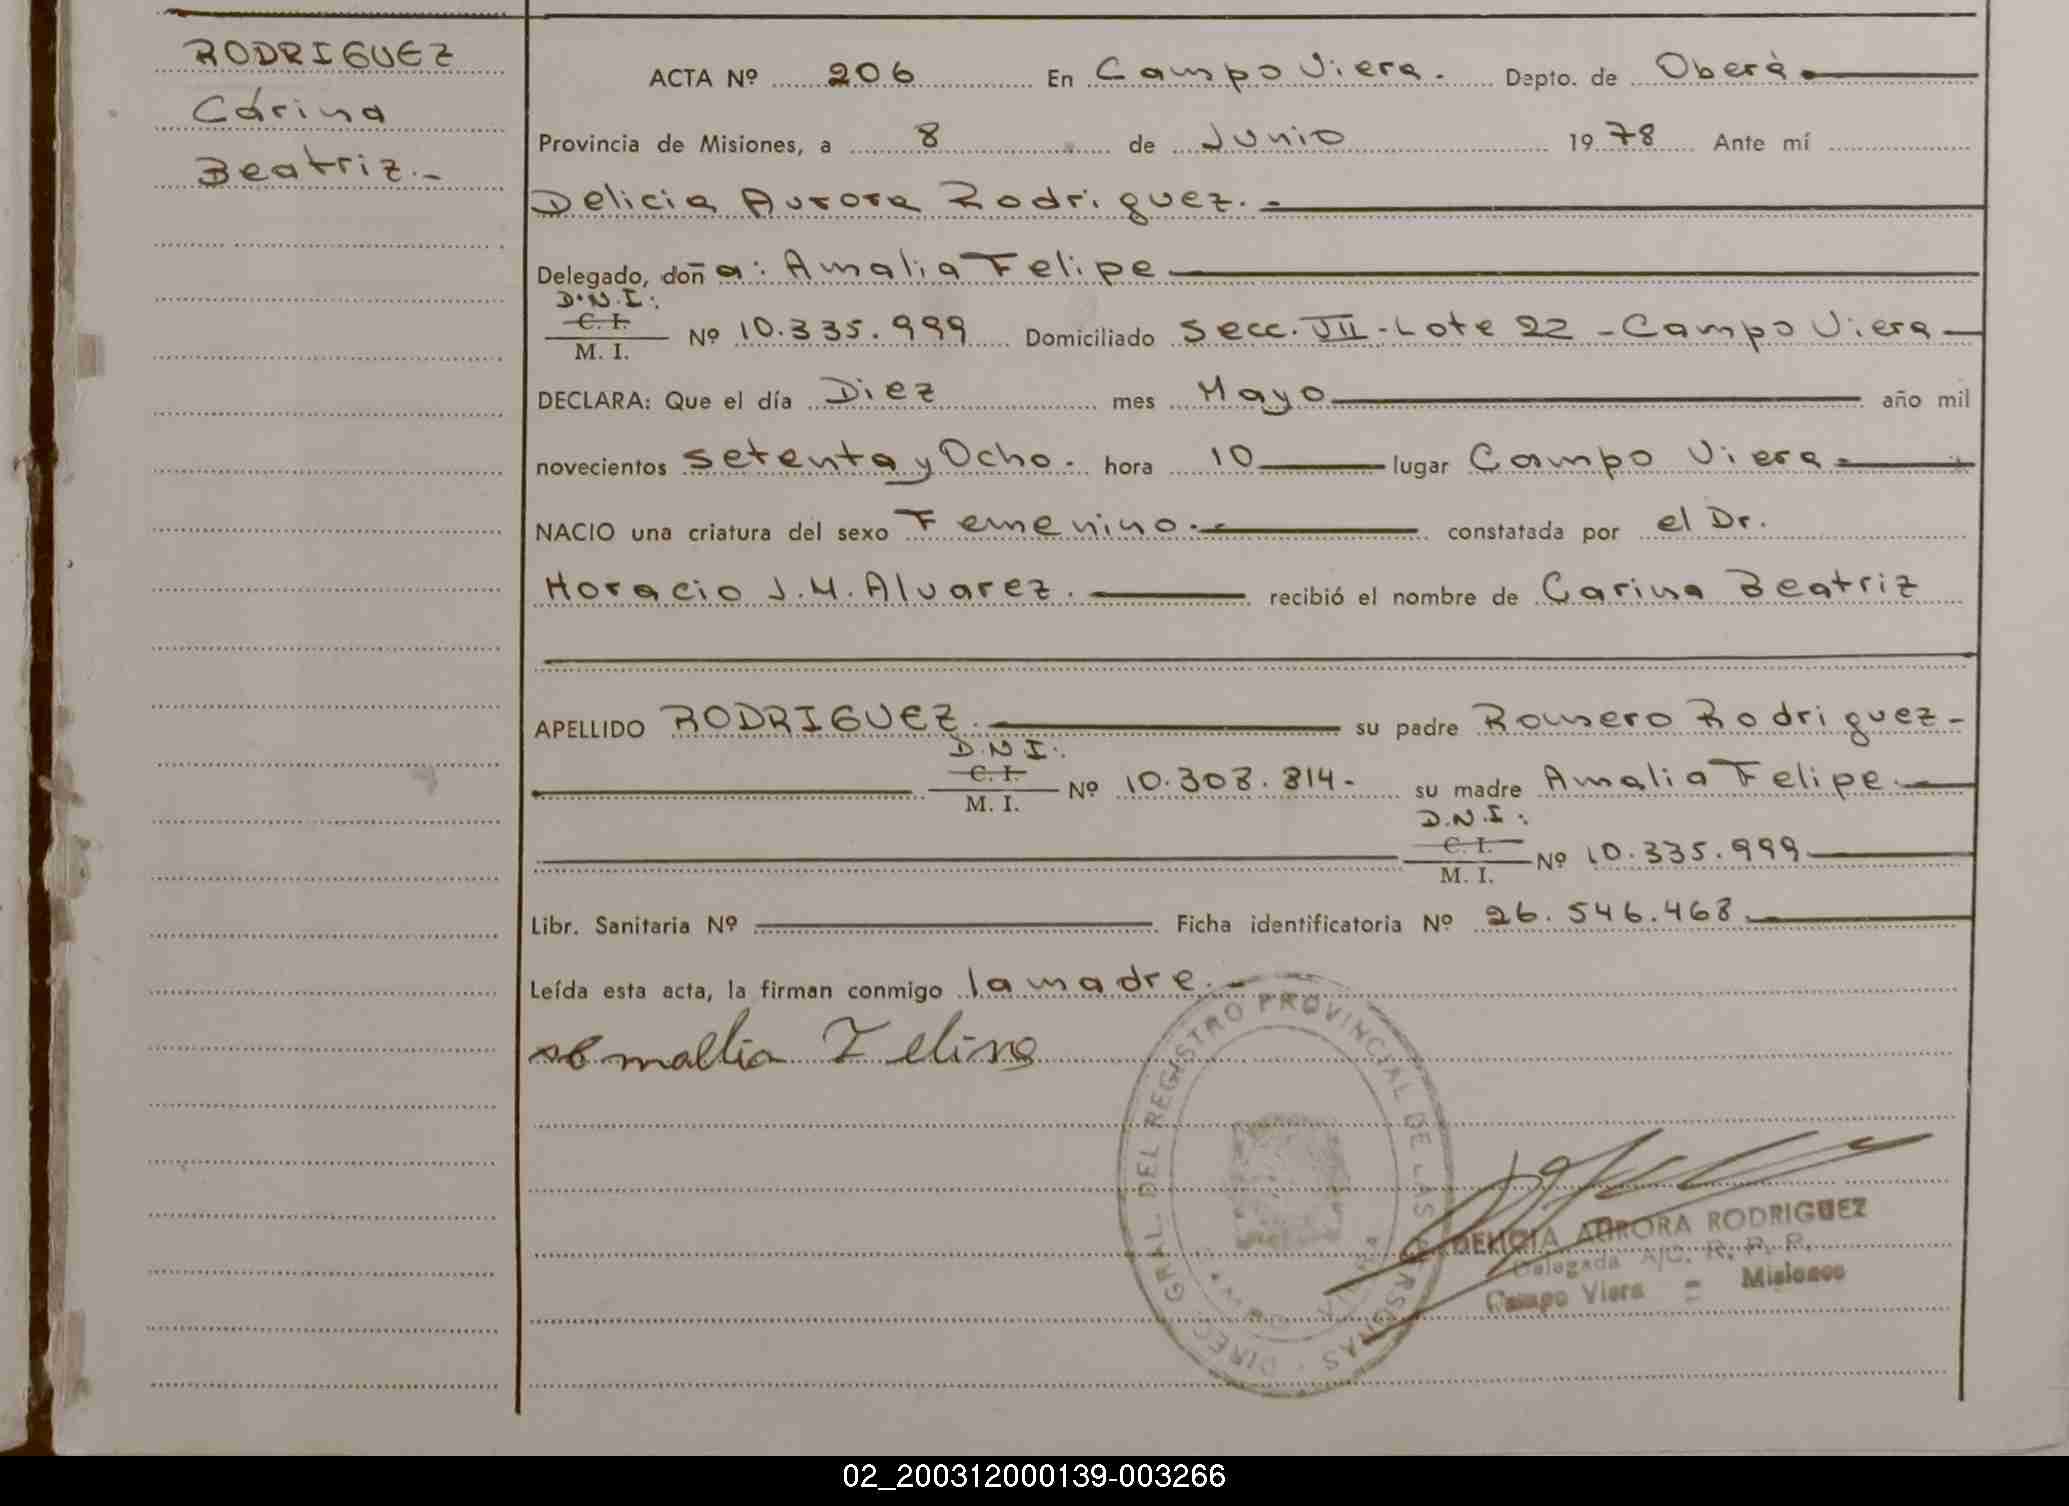 RODRIGUEZ
Cárina
Beatriz.-
ACTA Nº 206 En Campo Viera. Dapto. de Oberà.
Provincia de Misiones, a 8 de Junio 1978 Ante mí
Delicia Aurora Rodriguez.-
Delegado, doña: Amalia Felipe
D.N.I:
C. I.
M. I.
Nº 10.335.999 Domiciliado Secc. VII - Lote 22 - Campo Viera
DECLARA: Que el día Diez mes Mayo año mil
novecientos Setenta y Ocho. hora 10 lugar Campo Viera
NACIO una criatura del sexo Femenino.- constatada por el Dr.
Horacio J.M. Alvarez. recibió el nombre de Carina Beatriz
APELLIDO RODRIGUEZ. su padre Romero Rodriguez-
D.N.I:
C. I.
M. I.
Nº 10.308.814- su madre Amalia Felipe
D.N.I:
C. I.
M. I.
Nº 10.335.999
Libr. Sanitaria Nº Ficha identificatoria Nº 26.546.468
Leída esta acta, la firman conmigo la madre.-
DIREC. GRAL. DEL REGISTRO PROVINCIAL DE LAS PERSONAS
DELICIA AURORA RODRIGUEZ
Delegada A/C. R. P. P.
Campo Viera = Misiones
02_200312000139-003266